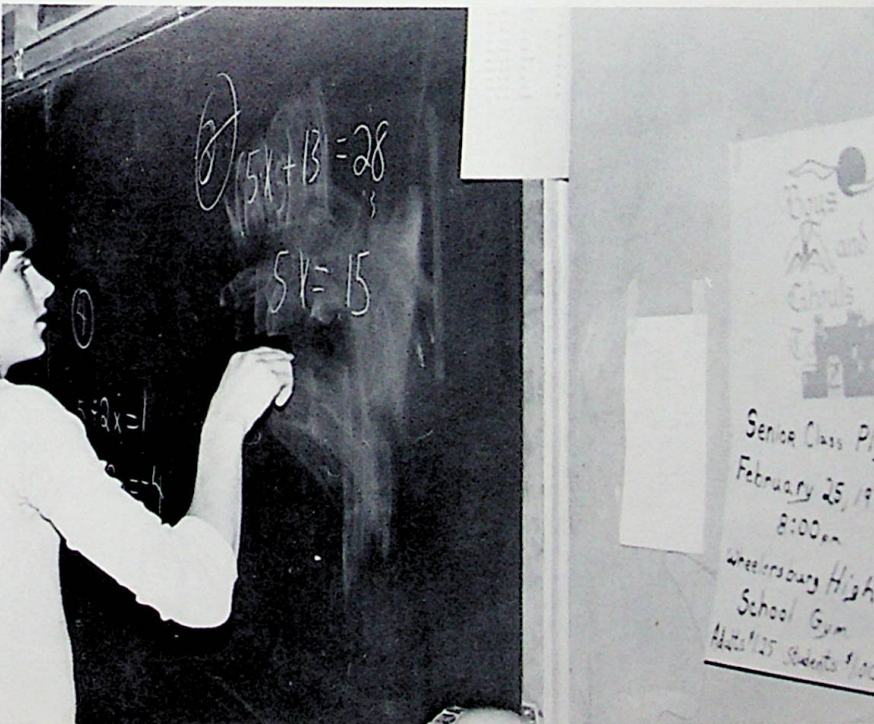 8 (5x + 13) = 28
13
5x = 15
4
5 - 2x = 1
= -4
Gous
and
Ghouls
T
Senior Class Pl
February 25, 19
8:00pm
Wheelersburg High
School Gym
Adults $1.25 Students $1.00